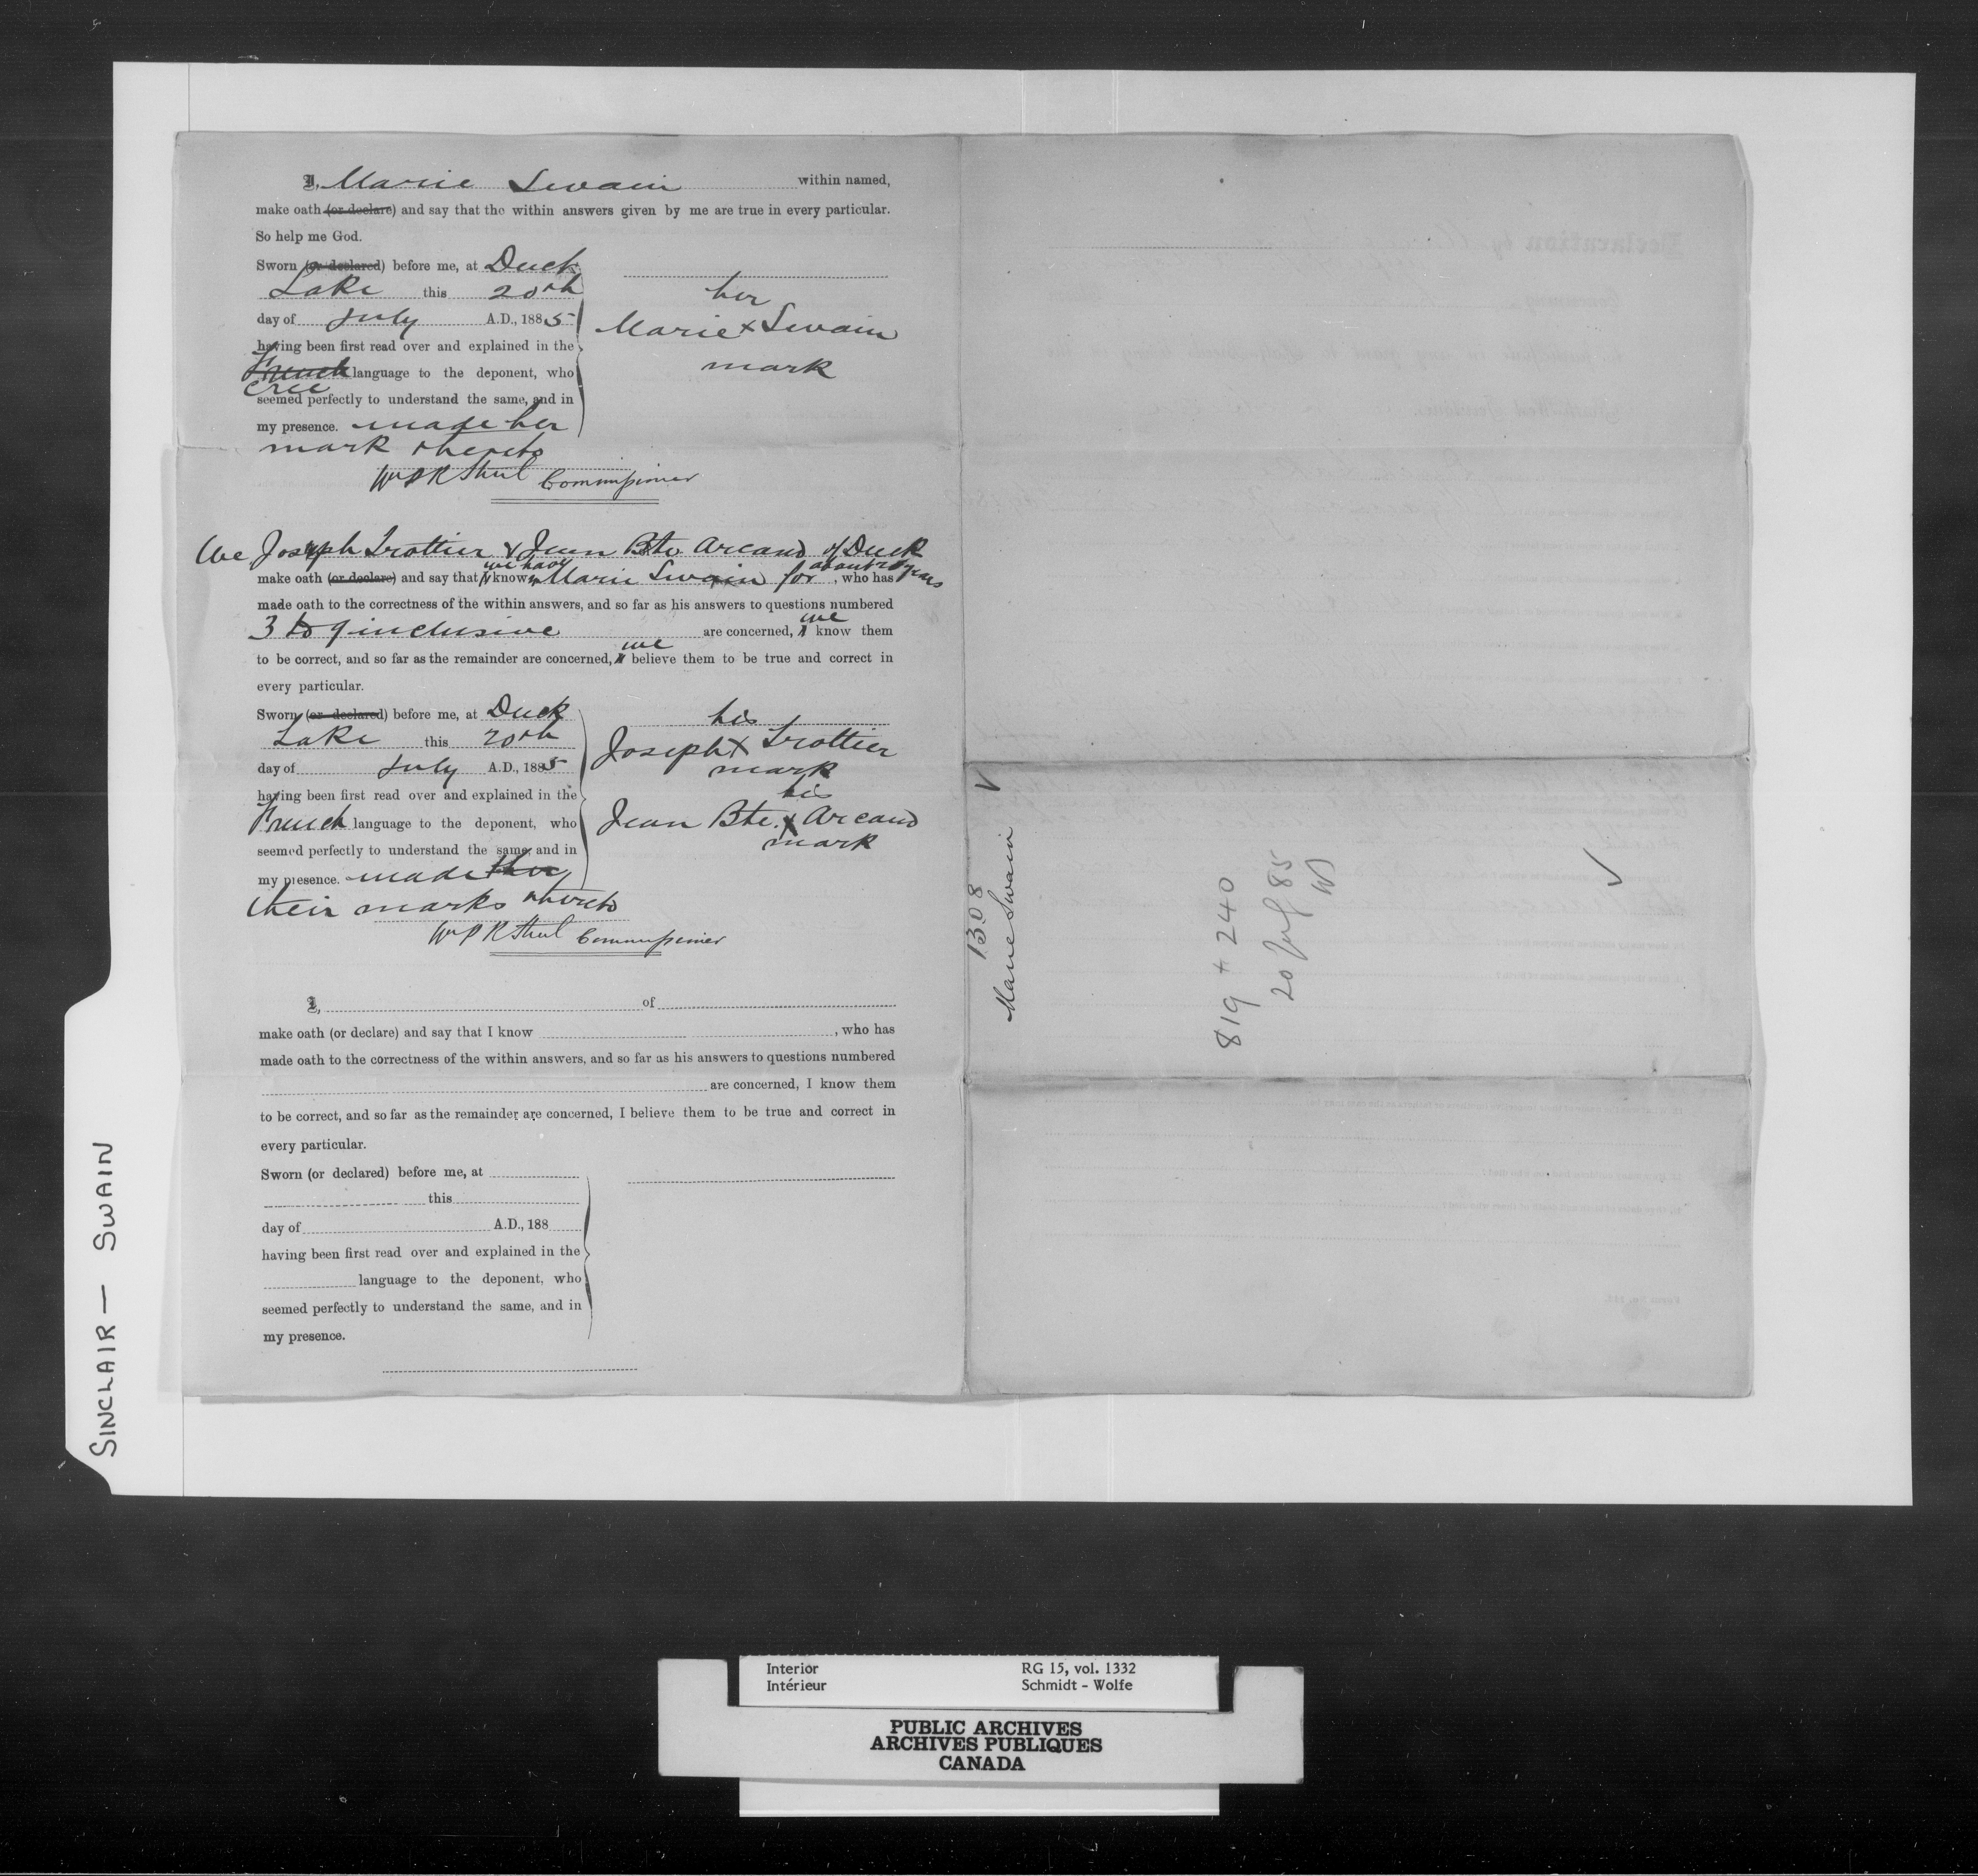 I, Marie Swain within named,
make oath (or declare) and say that the within answers given by me are true in every particular.
So help me God.
Sworn (or declared) before me, at Duck
Lake this 20th
day of July A.D., 1885
having been first read over and explained in the
French language to the deponent, who
Cree
seemed perfectly to understand the same, and in
my presence. made her
mark thereto
her
Marie x Swain
mark
Commissioner
We Joseph Trottier & Jean Bte. Arcand of Duck
we have about 20 years
make oath (or declare) and say that I know Marie Swain for, who has
made oath to the correctness of the within answers, and so far as his answers to questions numbered
we
3 to 9 inclusive are concerned, I know them
we
to be correct, and so far as the remainder are concerned, I believe them to be true and correct in
every particular.
Sworn (or declared) before me, at Duck
Lake this 20th
day of July A.D., 1885
having been first read over and explained in the
French language to the deponent, who
seemed perfectly to understand the same, and in
my presence. made
their marks thereto
his
Joseph x Trottier
mark
his
Jean Bte. x Arcand
mark
Commissioner
I, of
make oath (or declare) and say that I know , who has
made oath to the correctness of the within answers, and so far as his answers to questions numbered
are concerned, I know them
to be correct, and so far as the remainder are concerned, I believe them to be true and correct in
every particular.
Sworn (or declared) before me, at
this
day of A.D., 188
having been first read over and explained in the
language to the deponent, who
seemed perfectly to understand the same, and in
my presence.
1308
Marie Swain
819 + 240
20 July 85
SINCLAIR — SWAIN
Interior RG 15, vol. 1332
Intérieur Schmidt - Wolfe
PUBLIC ARCHIVES
ARCHIVES PUBLIQUES
CANADA